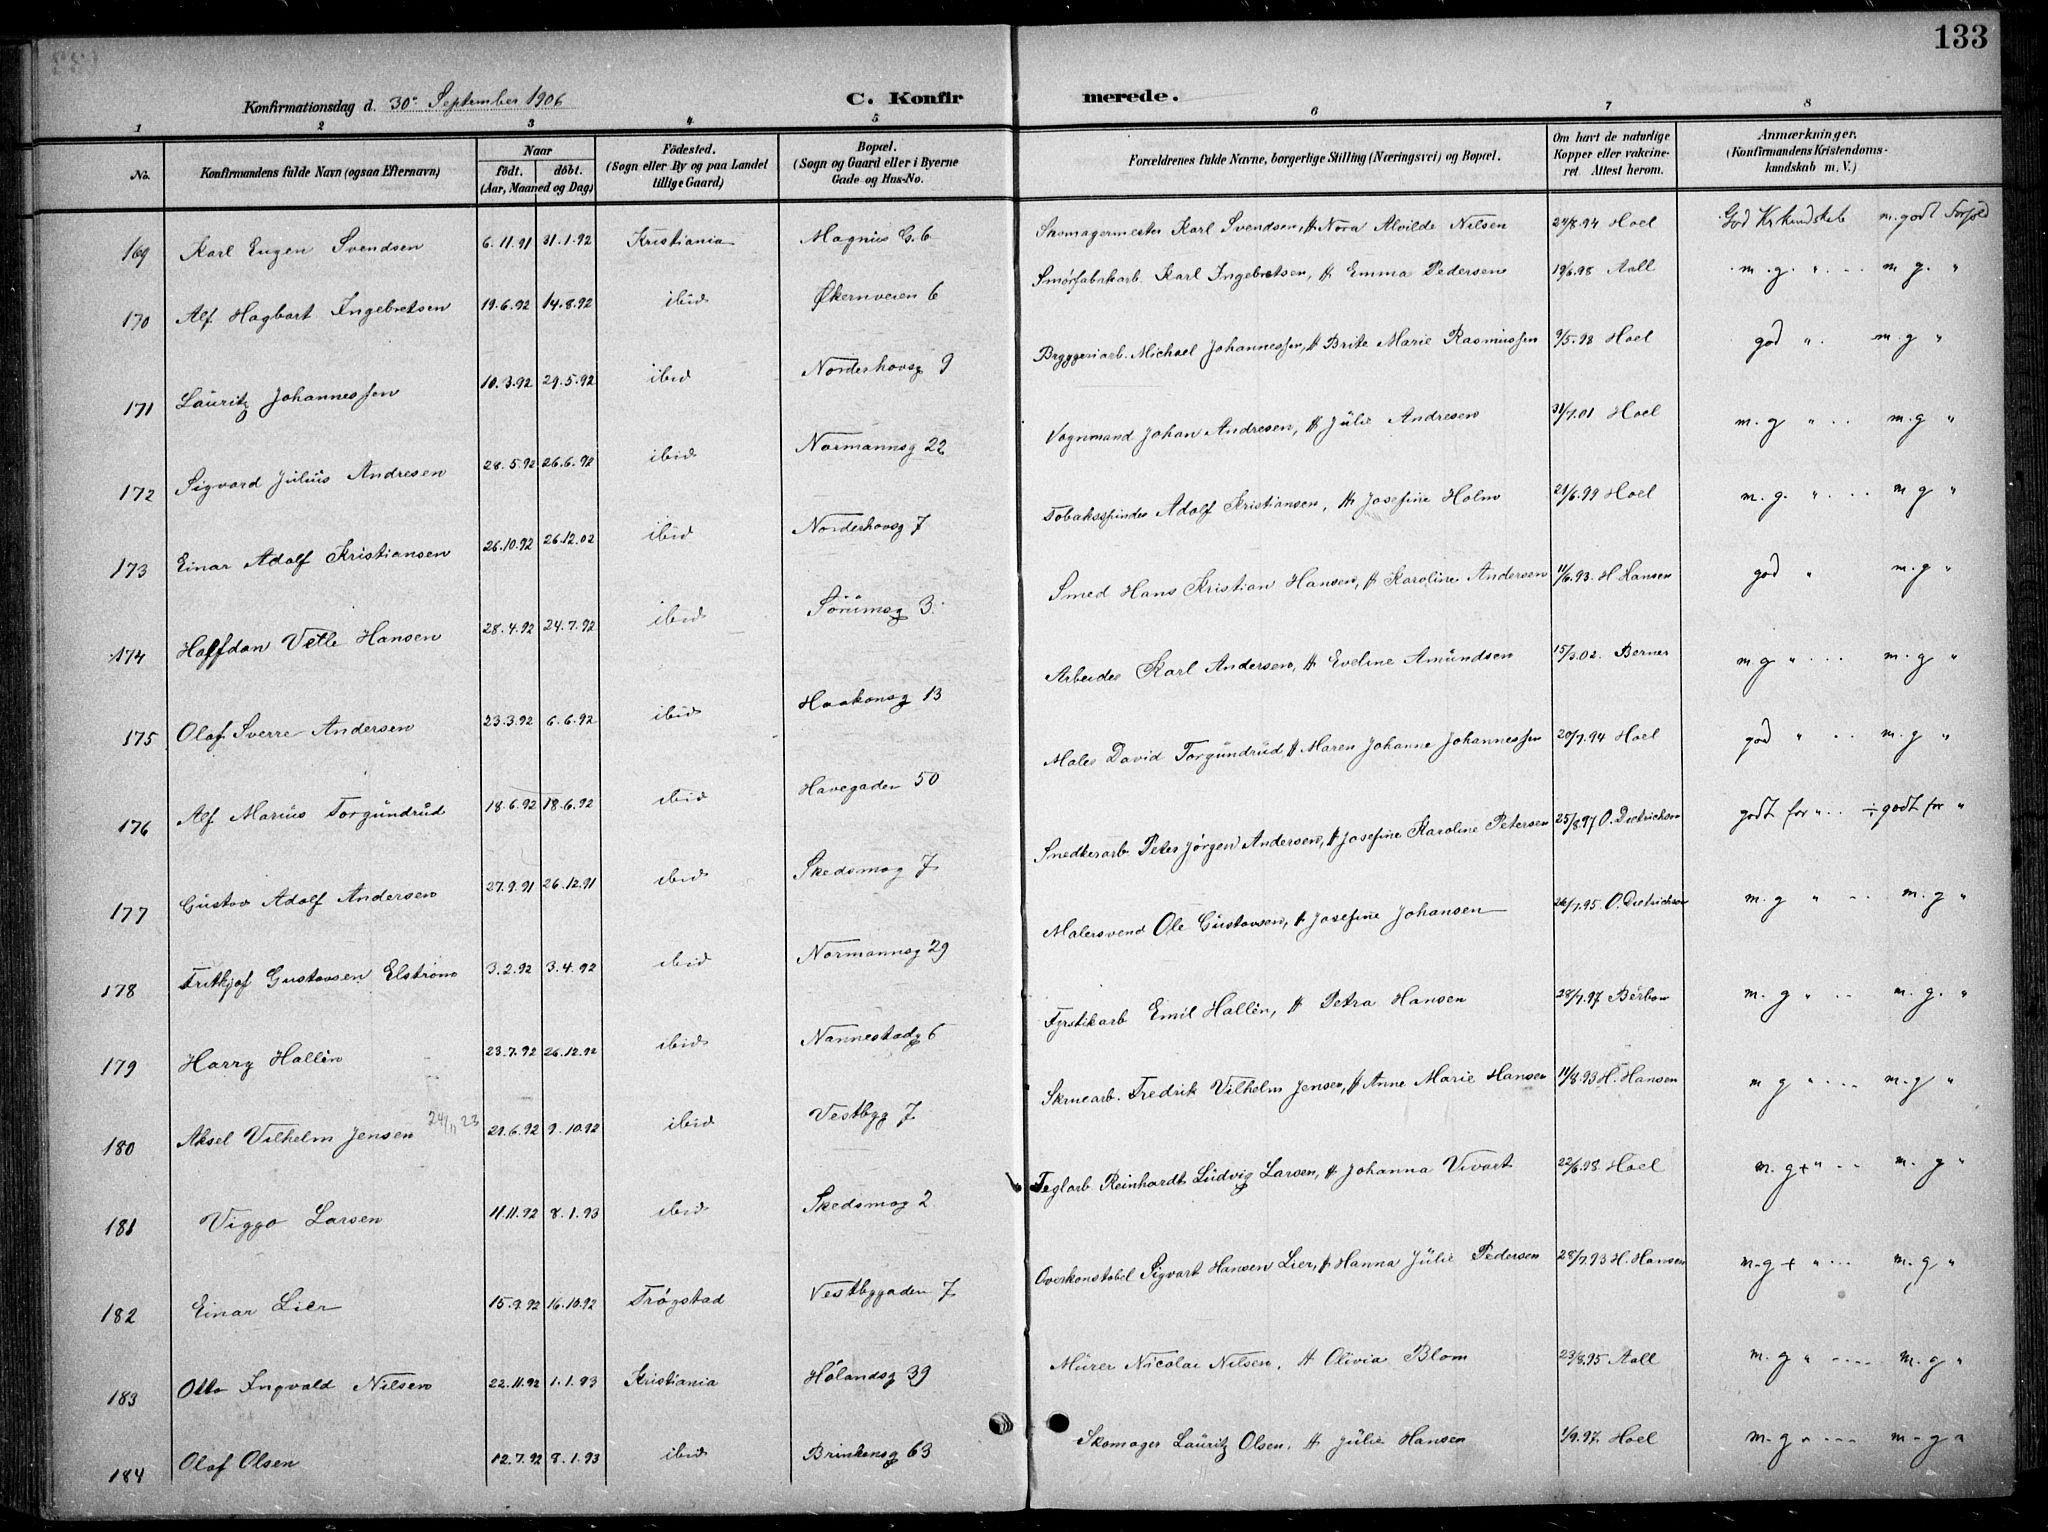 133
Konfirmationsdag d. 30' September 1906 C. Konfirmerede.
1 2 3 4 5 6 7 8
No. Konfirmandens fulde Navn (ogsaa Efternavn) Naar født. døbt. (Aar, Maaned og Dag) Fødested. (Sogn eller By og paa Landet tillige Gaard) Bopæl. (Sogn og Gaard eller i Byerne Gade og Hus-No. Forældrenes fulde Navne, borgerlige Stilling (Næringsvei) og Bopæl. Om havt de naturlige Kopper eller vakcineret. Attest herom. Anmærkninger. (Konfirmandens Kristendomskundskab m. V.)
169 Karl Eugen Svendsen 6.11.91 31.1.92 Kristiania Magnus G. 6 Skomagermester Karl Svendsen, H Nora Alvilde Nilsen 24/8.94 Hoel God Kr kundskab m. godt Forhold
170 Alf Hagbart Ingebretsen 19.6.92 14.8.92 ibid Økernveien 6 Smørfabrikarb. Karl Ingebretsen, H Emma Pedersen 19/6.98 Aall m. g. " m g. "
171 Lauritz Johannessen 10.3.92 29.5.92 ibid Norderhovsg 9 Bryggeriarb. Michael Johannessen, H Brite Marie Rasmussen 9/5.98 Hoel god " m. g "
172 Sigvard Julius Andresen 28.5.92 26.6.92 ibid Normannsg 22 Vognmand Johan Andresen, H Julie Andresen 31/7.01 Hoel m. g " m. g "
173 Einar Adolf Kristiansen 26.10.92 26.12.02 ibid Norderhovsg 7 Tobaksspinder Adolf Kristiansen, H Josefine Holm 21/6.99 Hoel m. g. " m g "
174 Halfdan Vetle Hansen 28.4.92 24.7.92 ibid Sörumsg 3. Smed Hans Kristian Hansen, H Karoline Andersen 11/6.93. H. Hansen god " m. g "
175 Olaf Sverre Andersen 23.3.92 6.6.92 ibid Haakonsg 13 Arbeider Karl Andersen, H Eveline Amundsen 15/3.02. Berner m g " m. g "
176 Alf Marius Torgundrud 18.6.92 18.6.92 ibid Havegaden 50 Maler David Torgundrud, H Maren Johanne Johannessen 20/7.94 Hoel god " m. g "
177 Gustav Adolf Andersen 27.9.91 26.12.91 ibid Skedsmog 7 Snedkerarb. Peter Jørgen Andersen, H Josefine Karoline Petersen 25/8.97 O. Dietrichson godt for " ÷ godt for "
178 Fritkjof Gustavsen Elstrøm 3.2.92 3.4.92 ibid Normannsg 29 Malersvend Ole Gustavsen, H Josefine Johansen 26/7.95 O. Dietrichson m. g " m. g "
179 Harry Hallin 23.7.92 26.12.92 ibid Nannestadg 6 Fyrstikarb Emil Hallin, H Petra Hansen 28/7.97 m. g " m. g. "
180 Aksel Vilhelm Jensen 24/11 23 29.6.92 9.10.92 ibid Vestbyg 7. Skruearb. Fredrik Vilhelm Jensen, H Anne Marie Hansen 11/8.93 H. Hansen m g " m. g "
181 Viggo Larsen 11.11.92 8.1.93 ibid Skedsmog 2 Teglarb Reinhardt Ludvig Larsen, H Johanna Vivart 22/6.98 Hoel m. g + " m. g "
182 Einar Lier 15.9.92 16.10.92 Trøgstad Vestbygaden 7 Overkonstabel Sigvart Hansen Lier, H Hanna Julie Pedersen 28/7.93 H. Hansen m. g + " m. g "
183 Otto Ingvald Nilsen 22.11.92 1.1.93 Kristiania Hölandsg 39 Murer Nicolai Nilsen, H Olivia Blom 23/8.95 Aall m. g " m. g "
184 Olaf Olsen 12.7.92 8.1.93 ibid Brinkensg 63 Skomager Lauritz Olsen, H Julie Hansen 1/9.97. Hoel m. g " m. g "